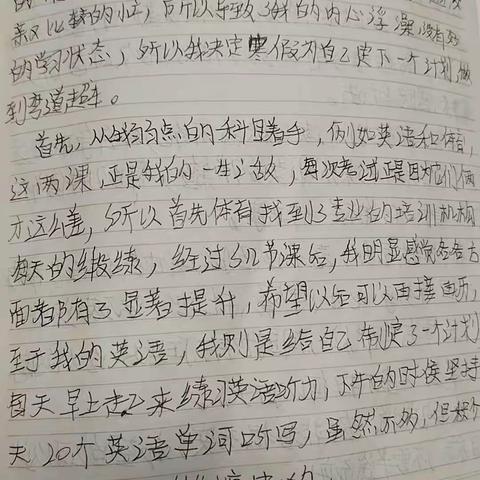 亲戚比较的小孩，所以导致了我的内心浮躁，没有好
的学习状态，所以我决定寒假为自己定下一个计划，做
到弯道超车。
首先，从我弱点的科目着手，例如英语和体育，
这两课，正是我的一生之敌，每次考试正是因为它们俩
才这么差，所以首先体育找到了专业的培训机构
每天的锻练，经过几节课后，我明显感觉各各方
面都有了显著提升，希望以后可以再接再厉，
至于我的英语，我则是给自己制定了一个计划
每天早上起来练习英语听力，下午的时候坚持
天20个英语单词听写，虽然不多，但